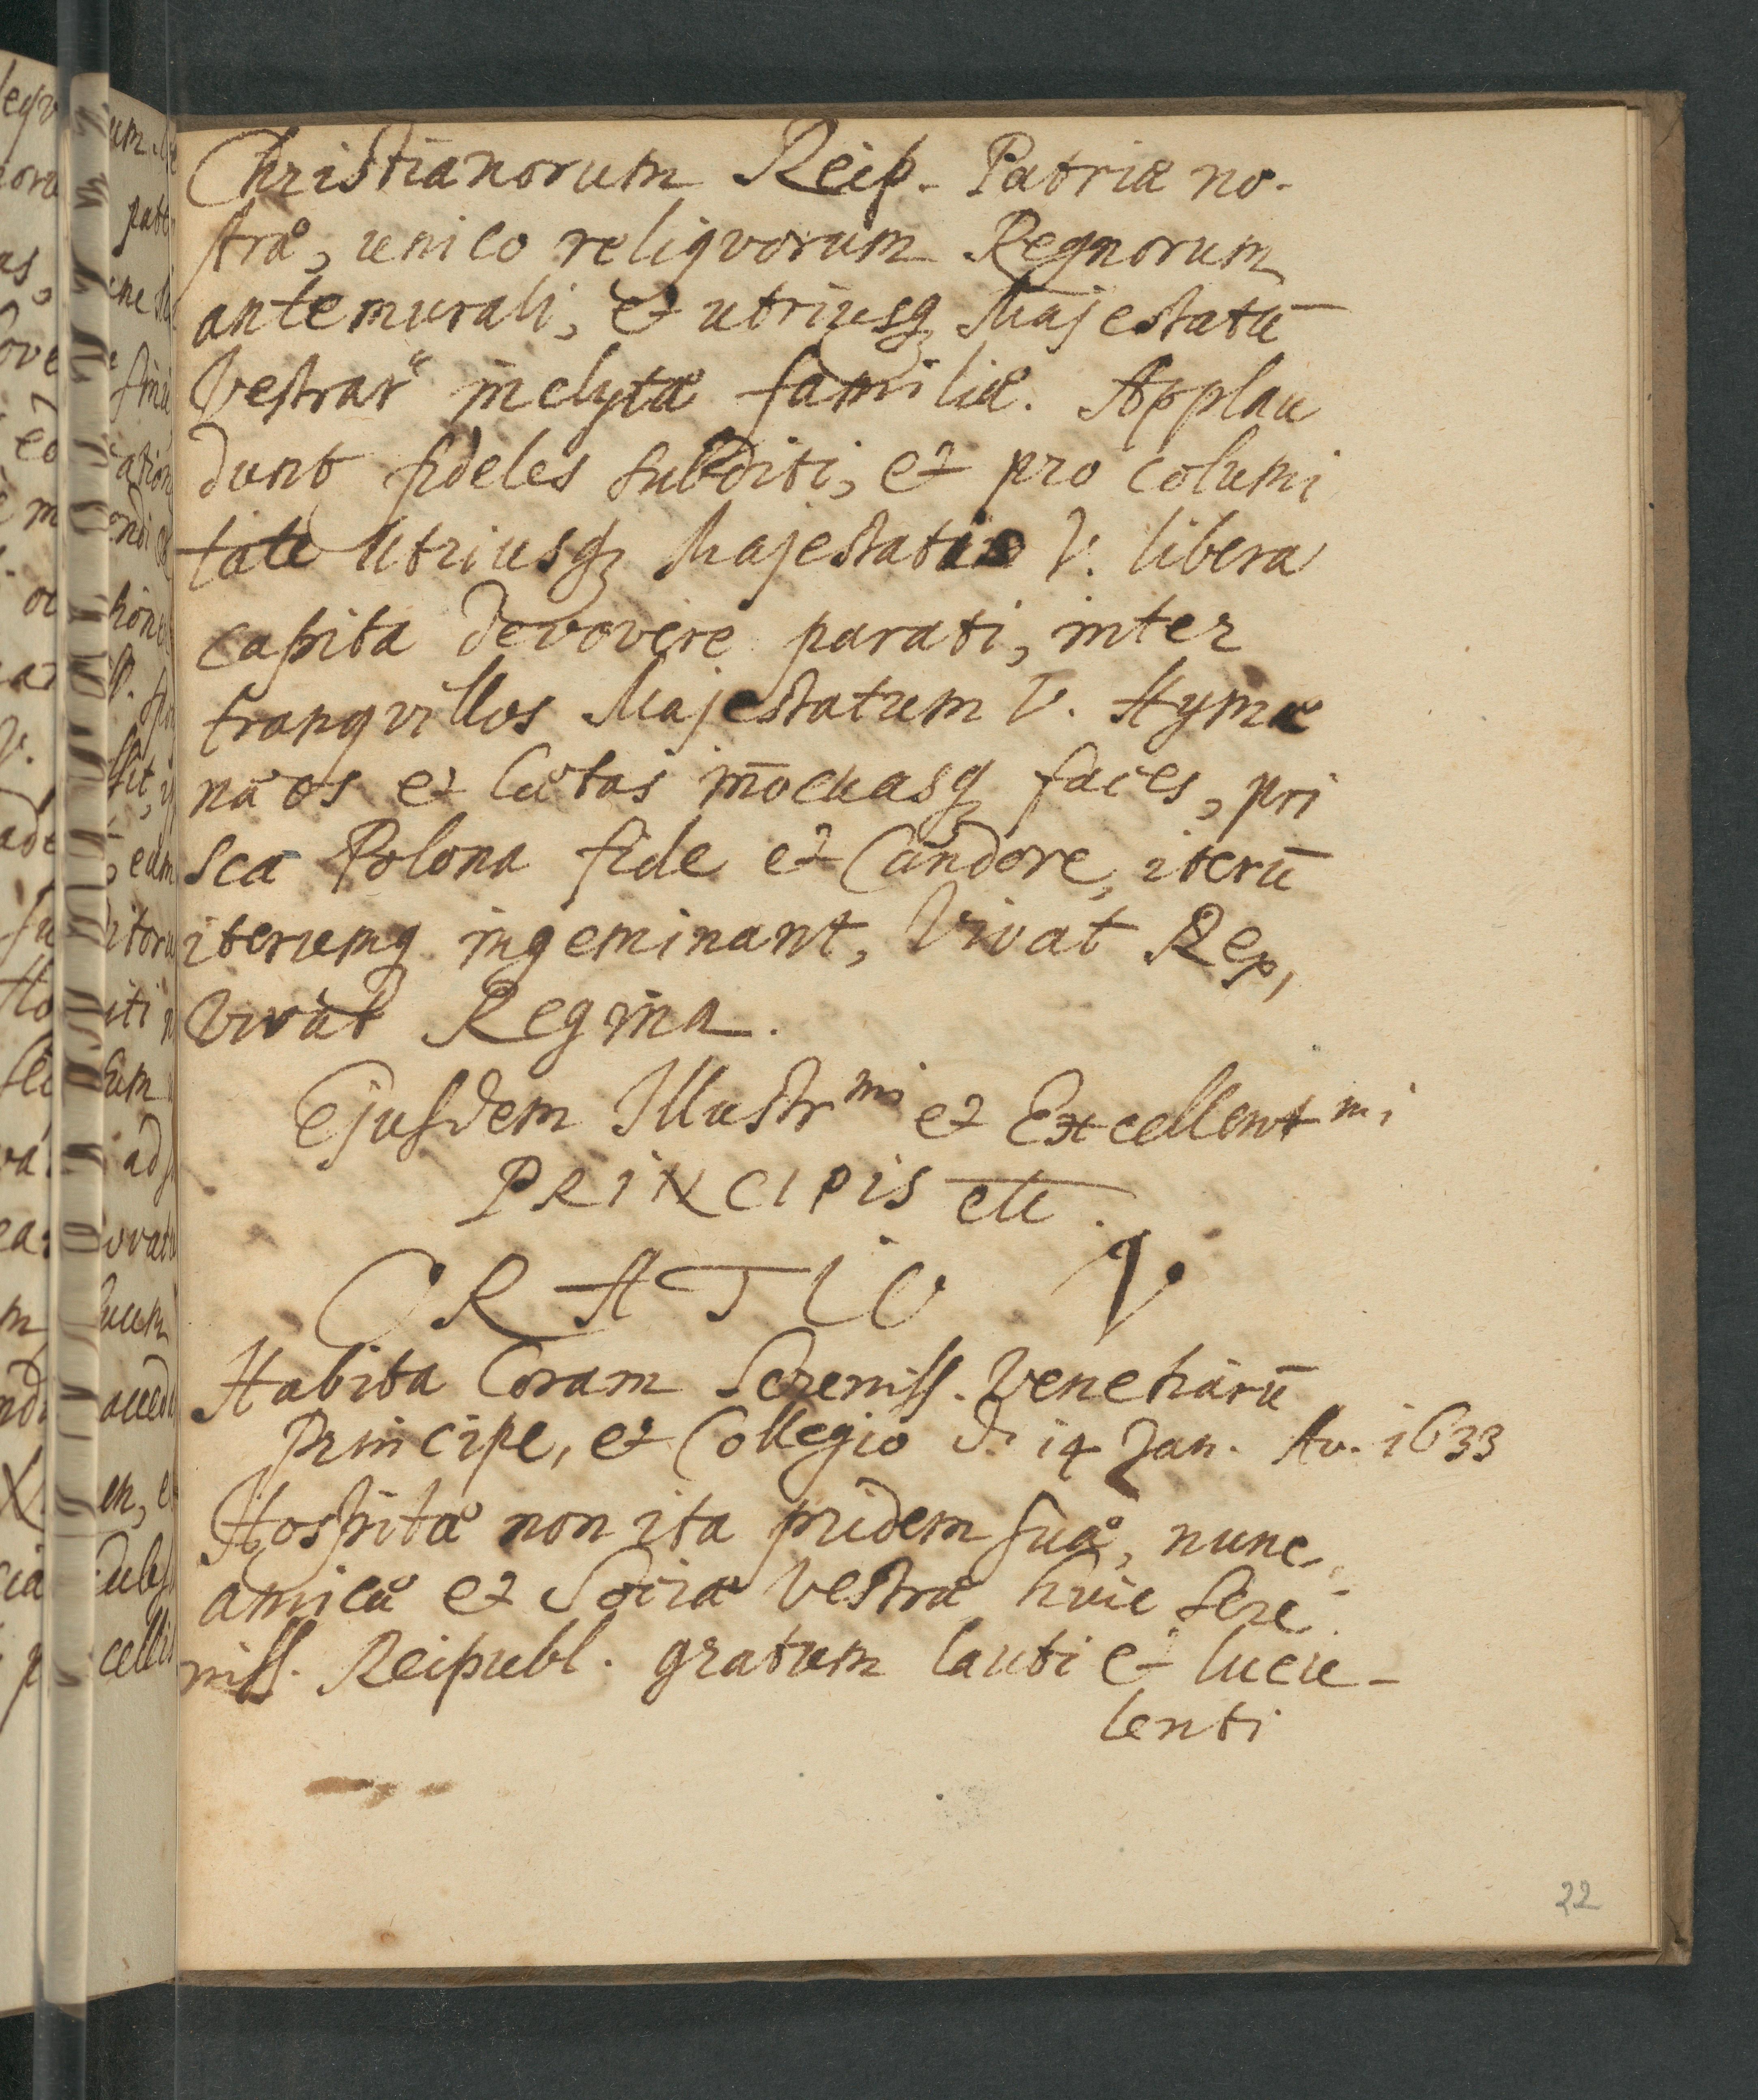 Christianorum Reip. Patriæ no-
stræ, unico reliqvorum Regnorum
antemurali, et utriusq; Majestatū
Vestrarū inclytæ familiæ. Applau
dunt fideles subditi, et pro columi
tate Utriusq; Majestatis V. libera
capita devovere parati, inter
tranqvillos Majestatum V. Hymæ
næos et lætas innocuasq; faces, pri
sca Polona fide et Candore, iterū
iterumq ingeminant, Vivat Rex,
Vivat Regina.
Ejusdem Illustr^mi et Excellent^mi
PRINCIPIS etc.
ORATIO V.
Habita Coram Sereniss. Venetiarū
Principe, et Collegio d. 14 Jan. Ao. 1633
Hospitæ non ita pridem suæ, nunc
amicæ et Sociæ Vestræ huic Sere-
niss. Reipubl. gratum lauti et lucu-
lenti
22